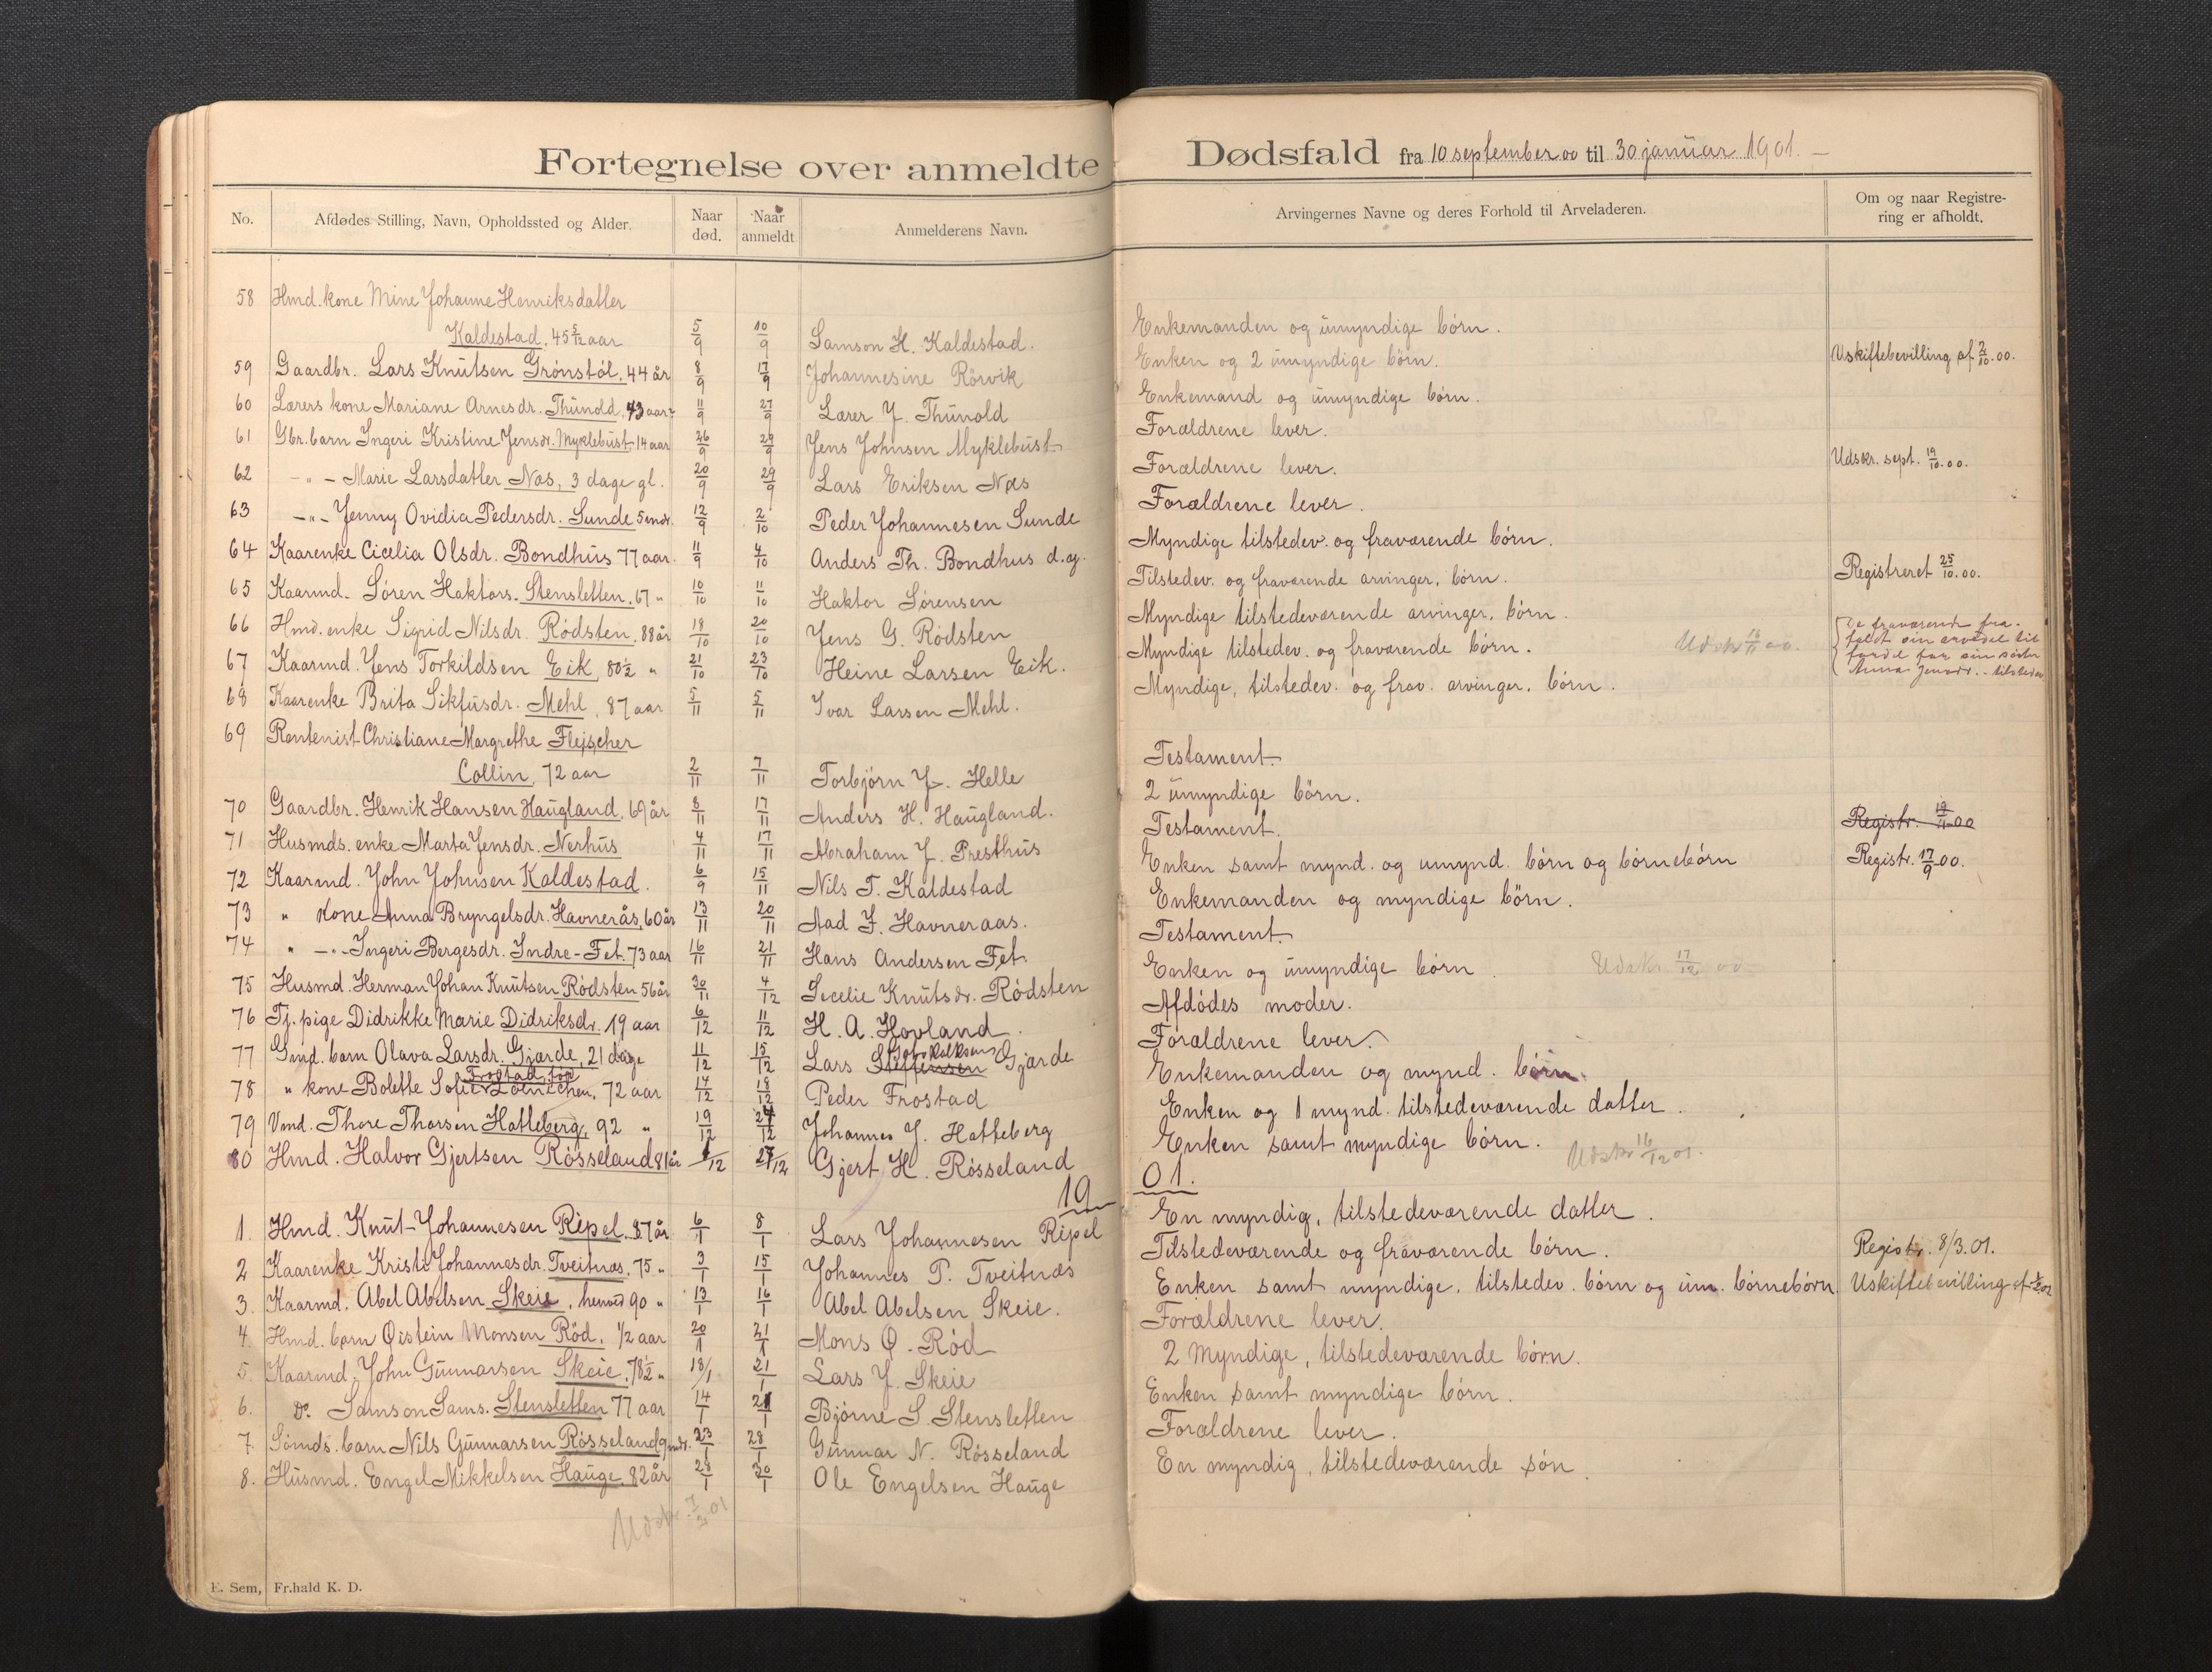 Fortegnelse over anmeldte Dødsfald fra 10 september 00 til 30 januar 1901. —
No. Afdødes Stilling, Navn, Opholdssted og Alder. Naar død. Naar anmeldt Anmelderens Navn. Arvingernes Navne og deres Forhold til Arveladeren. Om og naar Registrering er afholdt.
58 Hmd. kone Mine Johanne Henriksdatter
Kaldestad, 45 5/12 aar 5/9 10/9 Samson H. Kaldestad. Enkemanden og umyndige børn.
59 Gaardbr. Lars Knutsen Grønstøl, 44 år 8/9 17/9 Johannesine Rørvik Enken og 2 umyndige børn. Uskiftebevilling af 2/10.00.
60 Lærers kone Mariane Arnesdr. Thunold, 43 aar 11/9 27/9 Lærer J. Thunold Enkemand og umyndige børn.
61 Gbr. barn Ingeri Kristine Jensdr. Myklebust, 14 aar 26/9 29/9 Jens Johnsen Myklebust Forældrene lever.
62 -"- Marie Larsdatter Næs, 3 dage gl. 20/9 29/9 Lars Eriksen Næs Forældrene lever. Udskr. sept. 19/10.00.
63 -"- Jenny Ovidia Pedersdr. Sunde 5 mdr. 12/9 2/10 Peder Johannesen Sunde Forældrene lever.
64 Kaarenke Cicelia Olsdr. Bondhus 77 aar. 11/9 4/10 Anders Th. Bondhus d.y. Myndige tilstedev. og fraværende børn.
65 Kaarmd. Søren Haktors. Stensletten, 67 " 10/10 11/10 Haktor Sørensen Tilstedev. og fraværende arvinger, børn. Registreret 25/10.00.
66 Hmd. enke Sigrid Nilsdr. Rødsten, 88 år 18/10 20/10 Jens G. Rødsten Myndige tilstedeværende arvinger, børn.
67 Kaarmd. Jens Torkildsen Eik, 80 1/2 " 21/10 23/10 Heine Larsen Eik. Myndige tilstedev. og fraværende børn. Udskr 16/11 00. De fraværende fra-
faldt sin arvedel til
fordel for sin søster
Anna Jensdr. - tilstedev.
68 Kaarenke Brita Sikfusdr. Mehl, 87 aar 5/11 5/11 Ivar Larsen Mehl. Myndige, tilstedev. og frav. arvinger, børn.
69 Rentenist Christiane Margrethe Flejscher
Collin, 72 aar 2/11 7/11 Torbjørn J. Helle Testament.
70 Gaardbr. Henrik Hansen Haugland, 69 år 8/11 17/11 Anders H. Haugland. 2 umyndige børn.
71 Husmds. enke Marta Jensdr. Nerhus 4/11 17/11 Abraham J. Presthus Testament. Registr. 19/11-00
72 Kaarmd. John Johnsen Kaldestad. 6/9 15/11 Nils T. Kaldestad Enken samt mynd. og umynd. børn og børnebørn Registr. 17/9-00.
73 " kone Anna Bryngelsdr. Havnerås, 60 år 13/11 20/11 Aad J. Havneraas. Enkemanden og myndige børn.
74 " -"- Ingeri Bergesdr. Indre-Fet. 73 aar 16/11 21/11 Hans Andersen Fet Testament.
75 Husmd. Herman Johan Knutsen Rødsten 56 år 30/11 4/12 Secelie Knutsdr. Rødsten Enken og umyndige børn. Udskr 17/12 00
76 Tj. pige Didrikke Marie Didriksdr. 19 aar 6/12 11/12 H. A. Hovland. Afdødes moder.
77 Gmd. barn Olava Larsdr. Gjærde, 21 dage 11/12 15/12 Lars Steffensen Gjærde Forældrene lever.
78 " kone Bolette Sofie Frostad, 72 aar 14/12 18/12 Peder Frostad Enkemanden og mynd. børn.
79 Vmd. Thore Thorsen Hatleberg, 92 " 19/12 24/12 Johannes J. Hatteberg Enken og 1 mynd. tilstedeværende datter.
80 Hmd. Halvor Gjertsen Røsseland 81 år 1/12 27/12 Gjert H. Røsseland Enken samt myndige børn. Udskr 16/12 01.
1901.
1. Hmd. Knut Johannesen Ripel, 87 år 6/1 8/1 Lars Johannesen Ripel En myndig, tilstedeværende datter.
2 Kaarenke Kristi Johannesdr. Tveitnæs, 75 " 3/1 15/1 Johannes P. Tveitnæs Tilstedeværende og fraværende børn. Registr. 8/3.01.
3. Kaarmd. Abel Abelsen Skeie, henved 90 " 13/1 16/1 Abel Abelsen Skeie. Enken samt myndige, tilstedev. børn og um. børnebørn. Uskiftebevilling af
4. Hmd. barn Øistein Monsen Rød, 1/2 aar 20/1 21/1 Mons Ø. Rød Forældrene lever.
5. Kaarmd. John Gunnarsen Skeie, 78 1/2 " 18/1 21/1 Lars J. Skeie 2 Myndige, tilstedeværende børn.
6. Do. Samson Sams. Stensletten 77 aar 14/1 21/1 Bjørne S. Stensletten Enken samt myndige børn.
7. Sømds. barn Nils Gunnarsen Røsseland 9 mdr. 23/1 28/1 Gunnar N. Røsseland Forældrene lever.
8. Husmd. Engel Mikkelsen Hauge, 82 år 28/1 30/1 Ole Engelsen Hauge En myndig, tilstedeværende søn.
Udskr. 7/2 01
E. Sem, Fr.hald K. D.